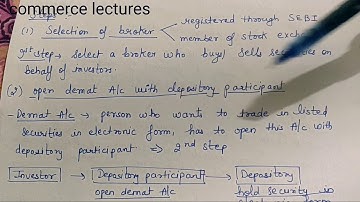 commerce lectures
Steps
(1) Selection of broker
registered through SEBI
member of stock exch
1st step → select a broker who buys/ sells securities on
behalf of investor.
(2) open demat A/c with depository participant
- Demat A/c → person who wants to trade in listed
securities in electronic form, has to open this A/c with
depository participant ⇒ 2nd step
Investor → Depository participant → Depository
open demat A/c
hold security in